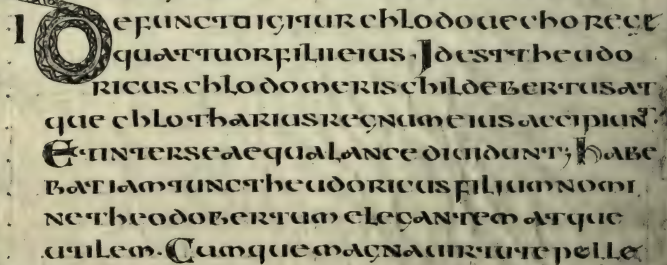 I Defuncto igitur chlodouecho rege
quattuor filii eius. Id est theudo
ricus chlodomeris childebertus at
que chlotharius regnum eius accipiunt
Et inter se aequa lance diuidunt; habe
bat iam tunc theudoricus filium nomi
ne theodobertum elegantem atque
utilem. Cumque magna uirtute polle